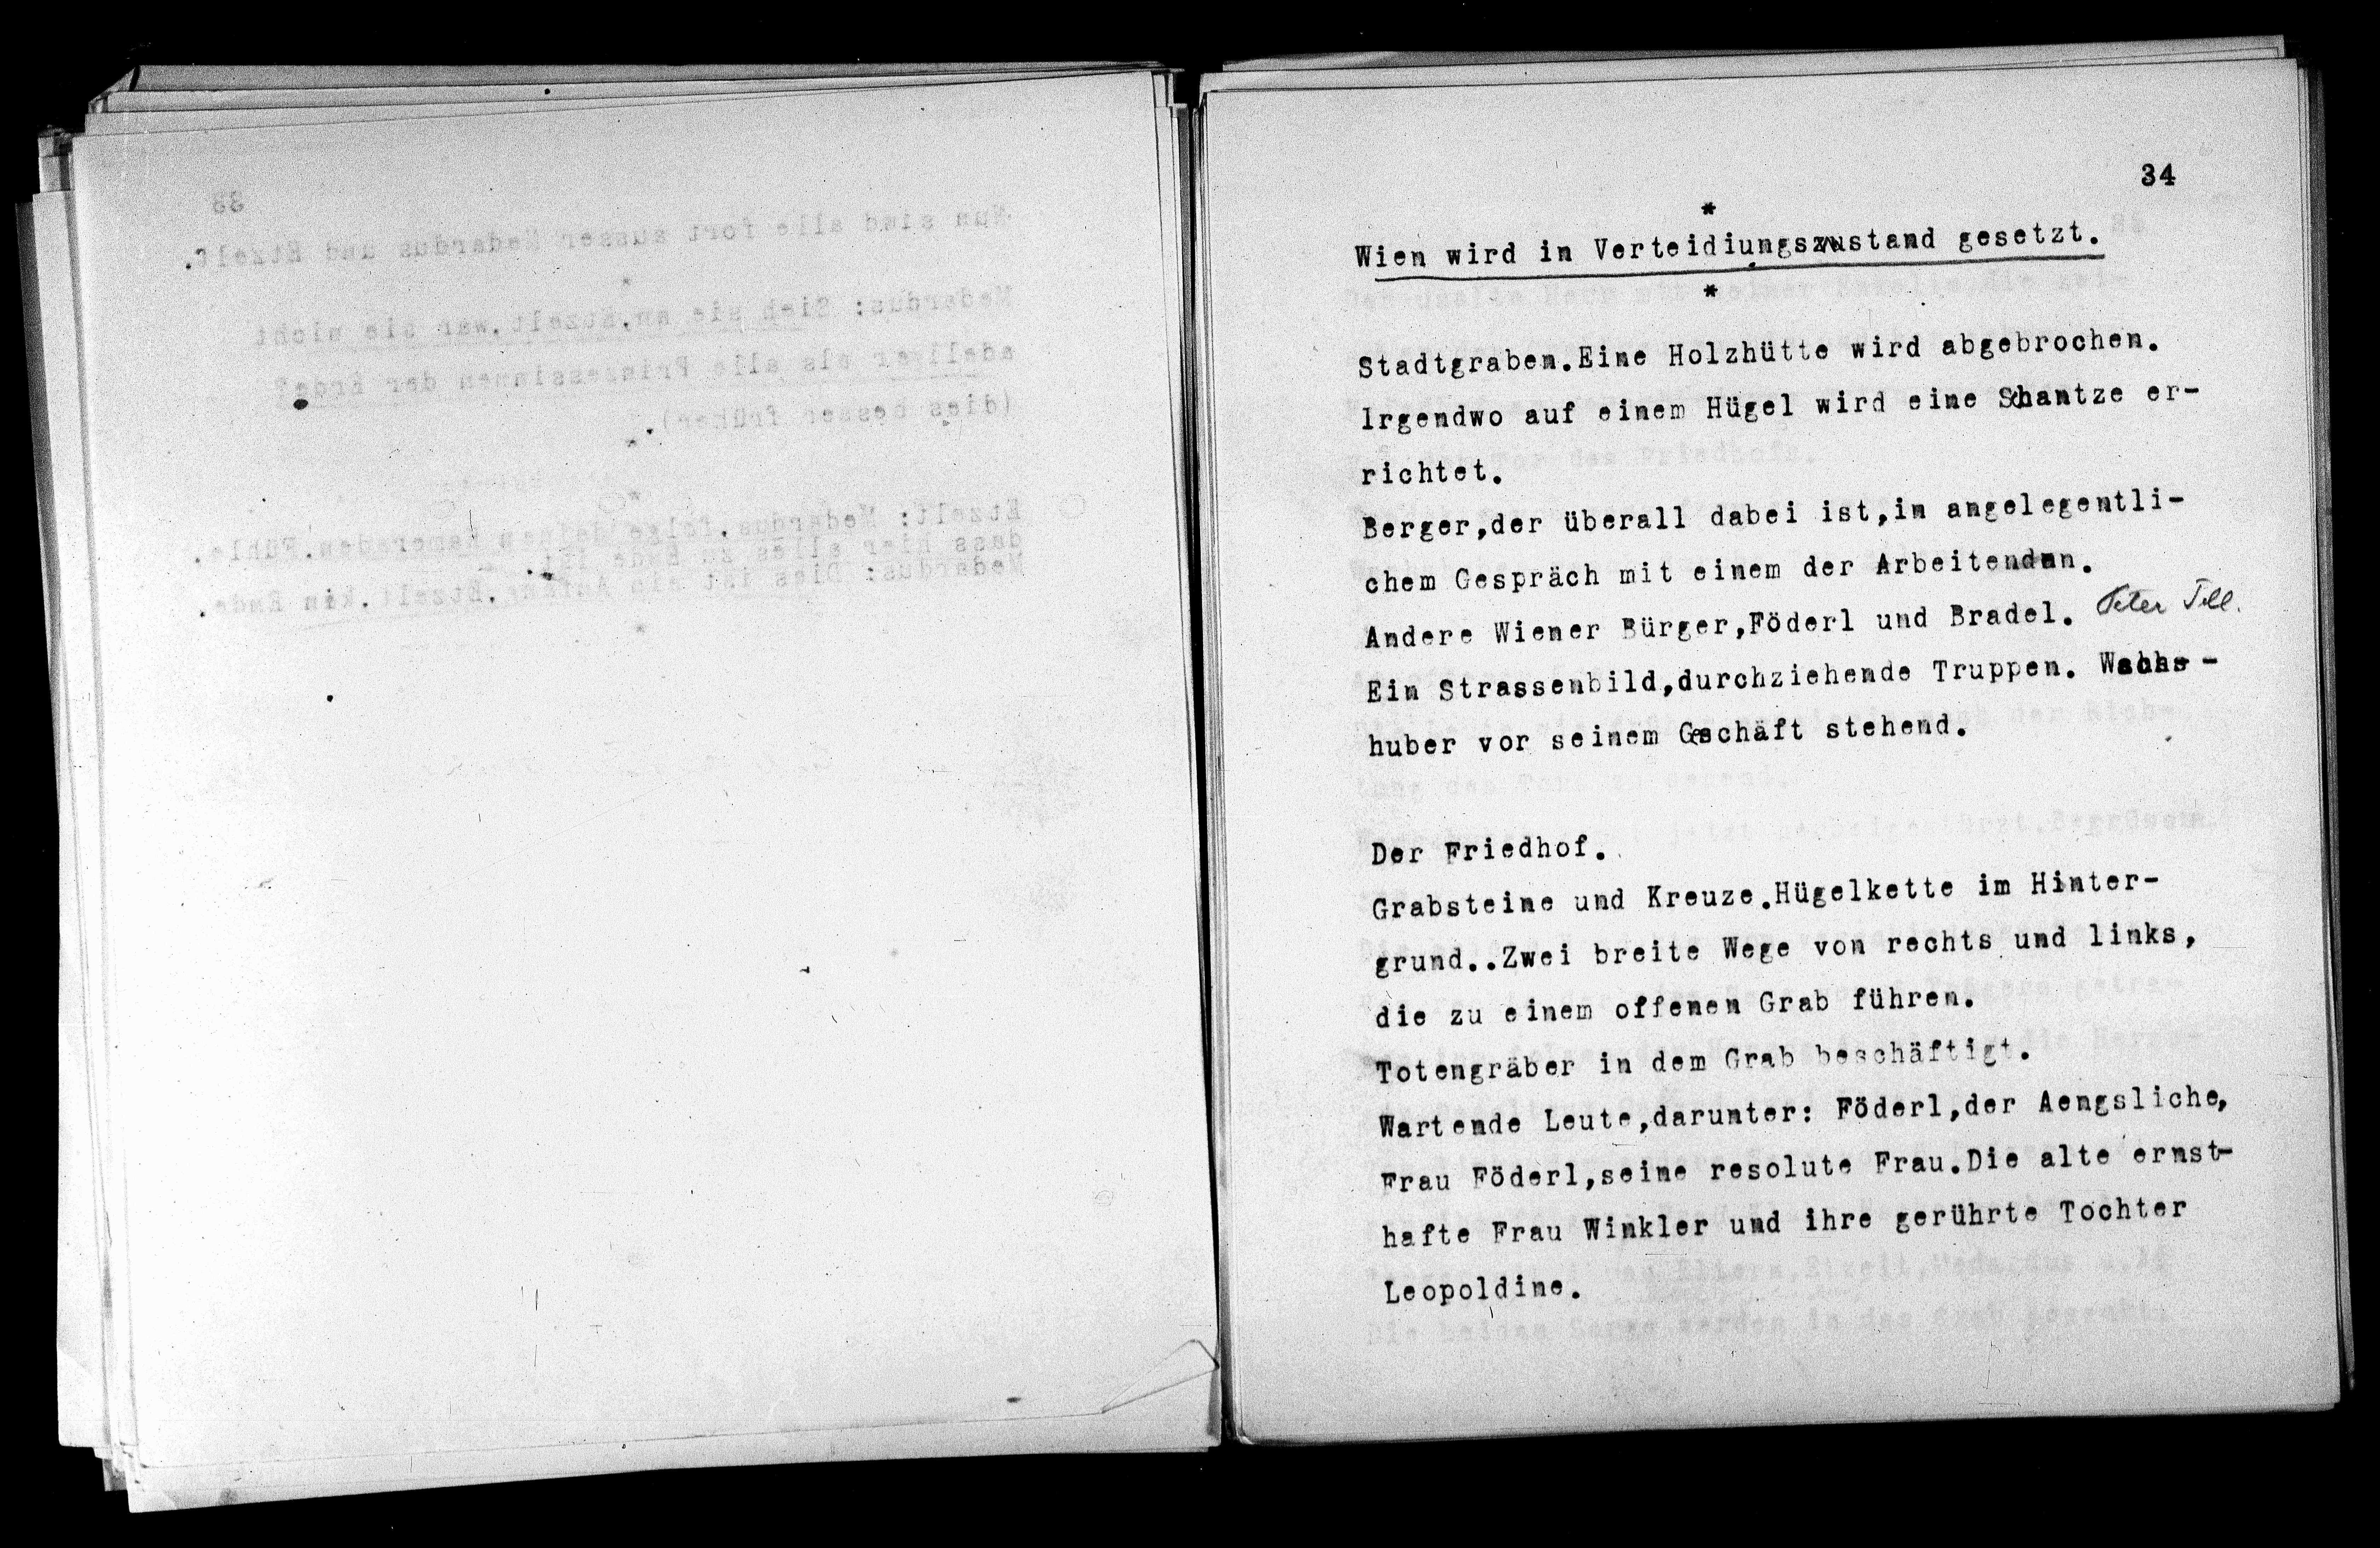 34
*
Wien wird in Verteidiungszustand gesetzt.
*
Stadtgraben.Eine Holzhütte wird abgebrochen.
Irgendwo auf einem Hügel wird eine Schantze er-
richtet.
Berger,der überall dabei ist,in angelegentli-
chem Gespräch mit einem der Arbeitenden.
Andere Wiener Bürger,Föderl und Bradel. Peter Tell.
Ein Strassenbild,durchziehende Truppen. Wachs-
huber vor seinem Geschäft stehend.
Der Friedhof.
Grabsteine und Kreuze.Hügelkette im Hinter-
grund..Zwei breite Wege von rechts und links,
die zu einem offenen Grab führen.
Totengräber in dem Grab beschäftigt.
Wartende Leute,darunter: Föderl,der Aengsliche,
Frau Föderl,seine resolute Frau.Die alte ernst-
hafte Frau Winkler und ihre gerührte Tochter
Leopoldine.